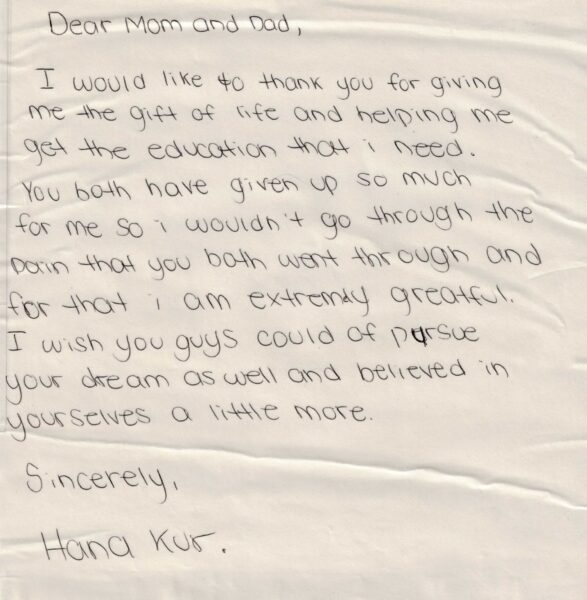 Dear Mom and Dad,
I would like to thank you for giving
me the gift of life and helping me
get the education that i need.
You both have given up so much
for me so i wouldn't go through the
pain that you both went through and
for that i am extremly greatful.
I wish you guys could of pursue
your dream as well and believed in
yourselves a little more.
Sincerely,
Hana Kur.